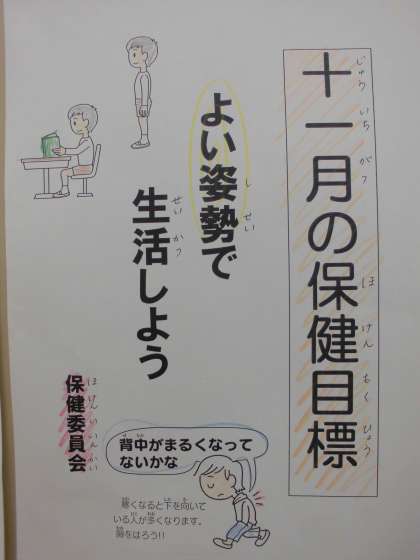 十一月の保健目標
じゅういちがつ ほけんもくひょう
よい姿勢で
しせい
生活しよう
せいかつ
保健委員会
ほけんいいんかい
背中がまるくなって
ないかな
寒くなると下を向いて
いる人が多くなります。
胸をはろう!!